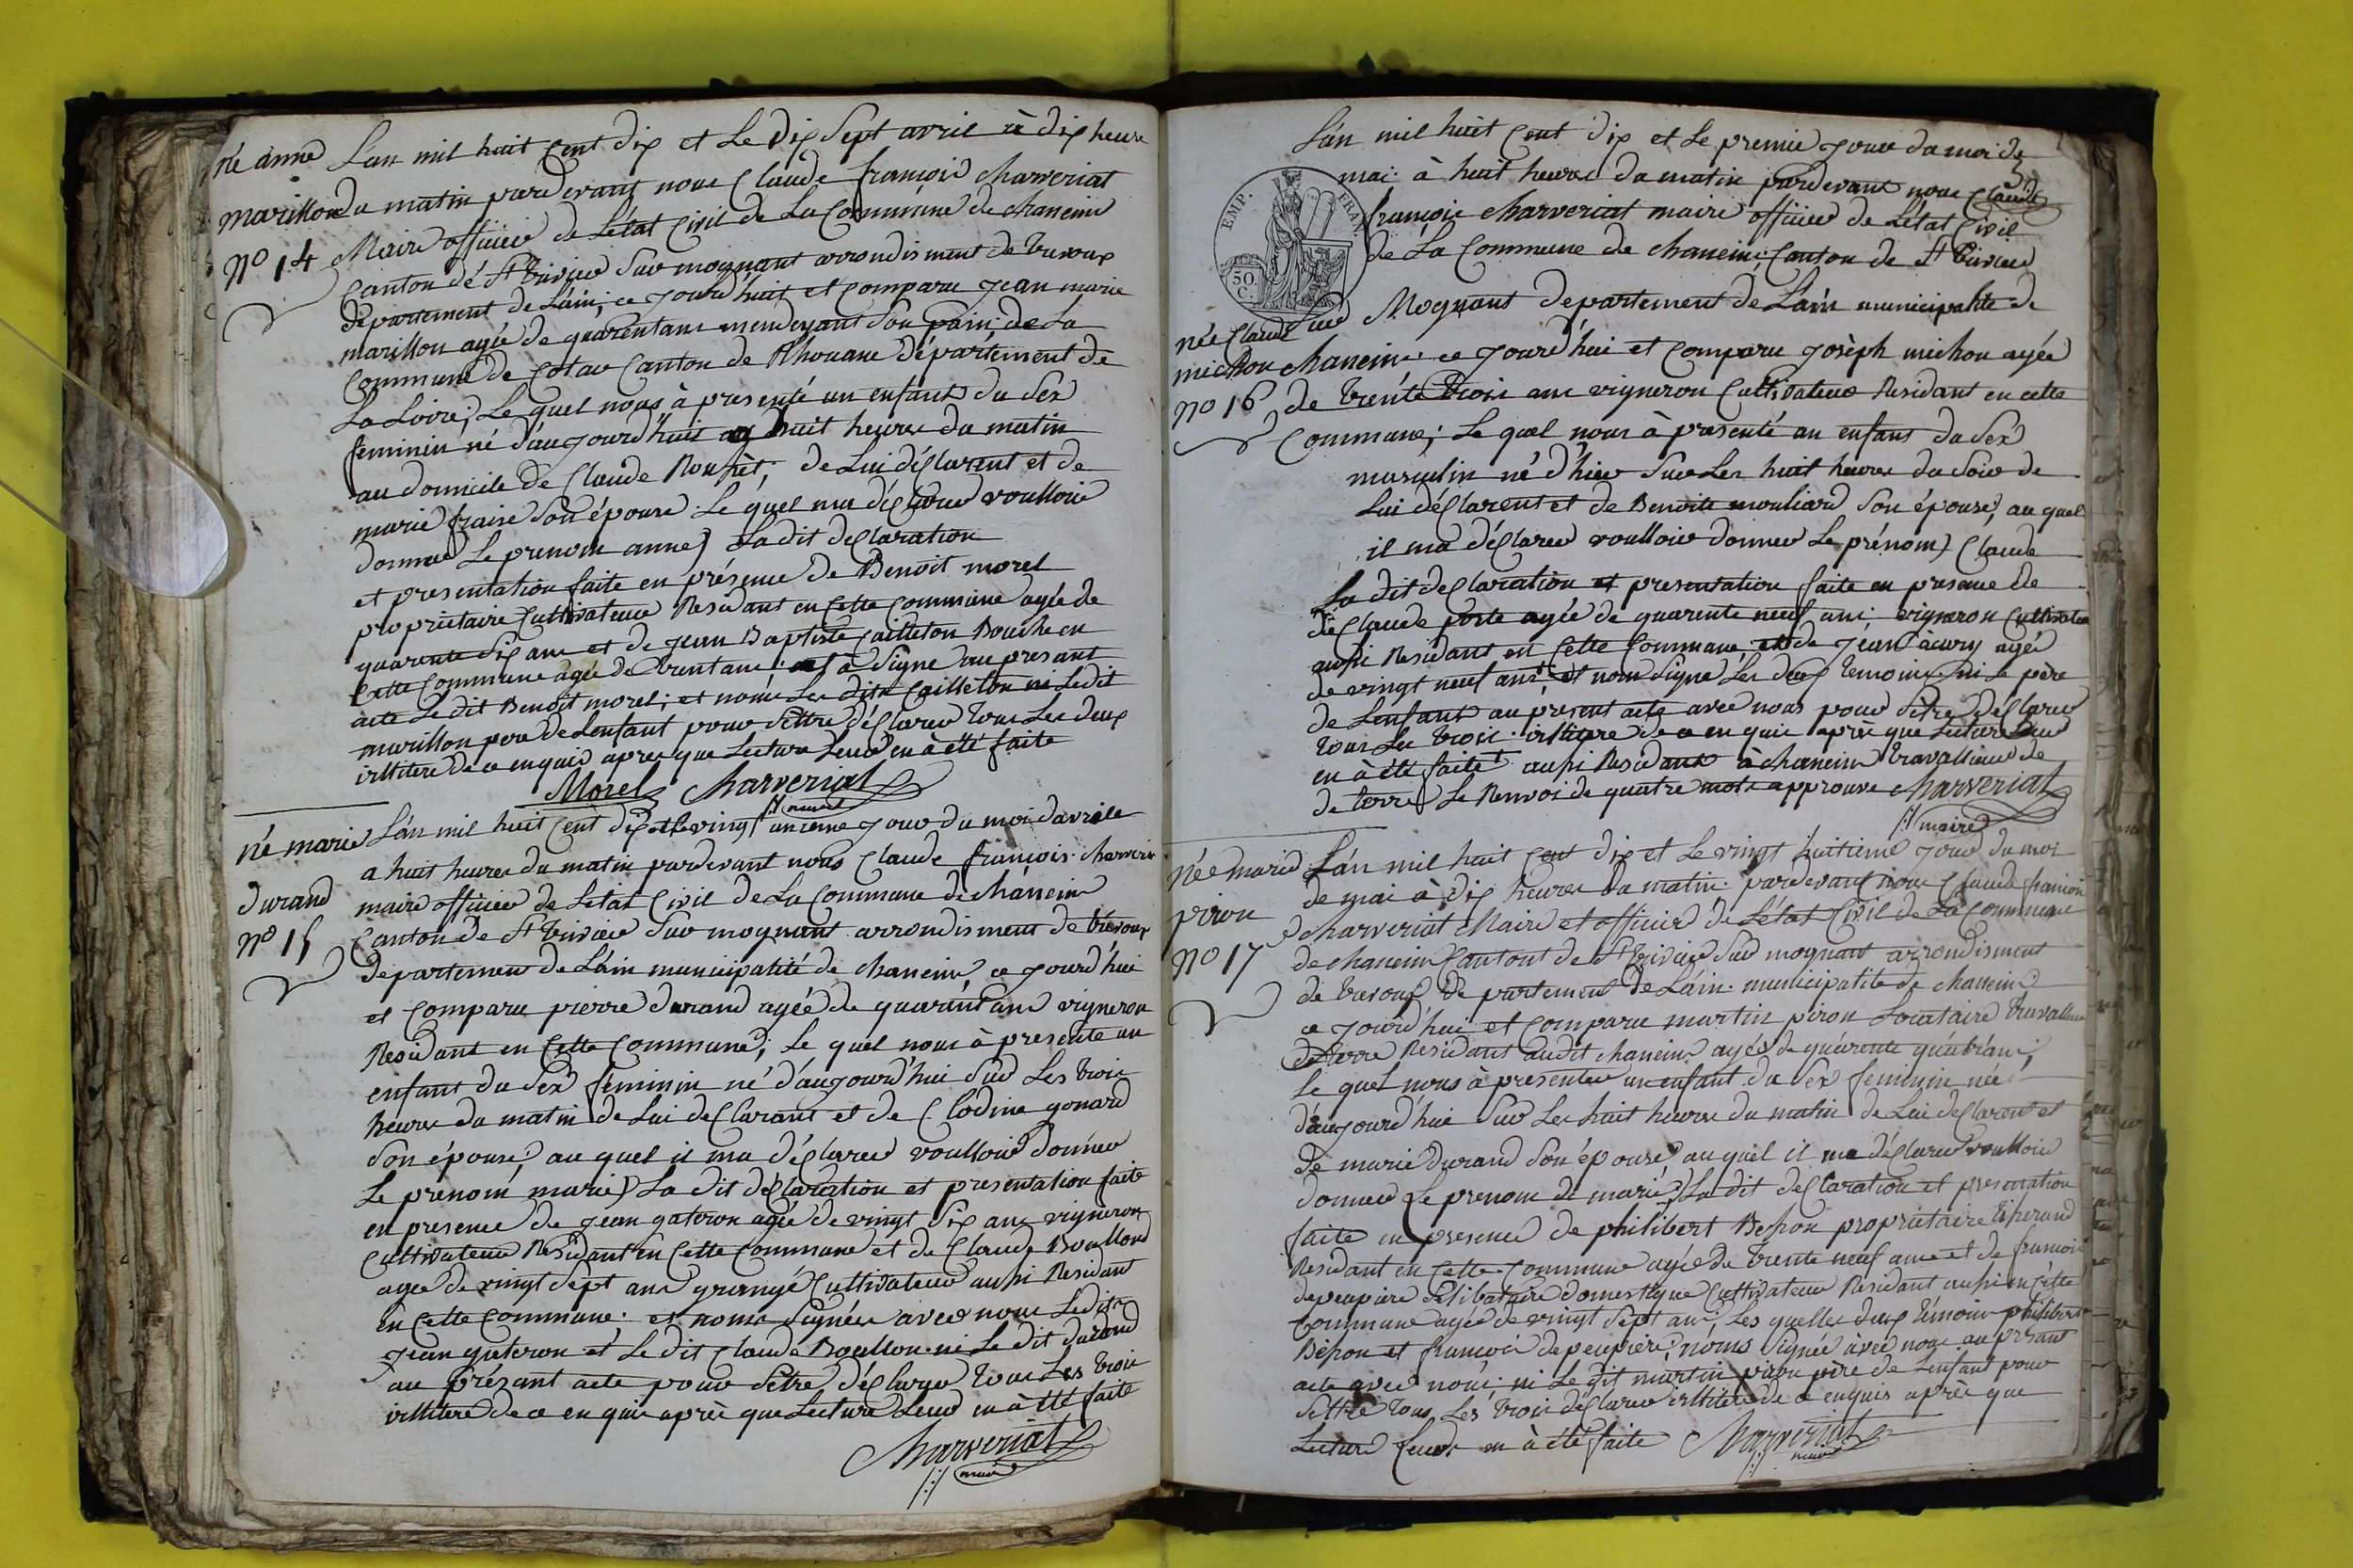 né anne L'an mil huit Cent dix et Le dix Sept avril à dix heure
marillon du matin pardevant nous Claude françois charveriat
No 14 Maire officier de L'état Civil de La Commune de chaneins
Canton de St trivier Sur mognant arrondisment de trevoux
département de L'ain; ce jourd'huit et comparu jean marie
marillon agée de quarentans mendeyant Son pain de La
Commune de Cotau Canton de Rhouane Département de
La Loire; Le quel nous à presenté un enfant du Sex
feminin né d'aujourd'huis à huit heures du matin
au domicile de Claude de Lui déClarent et de
marie fraise Son épouse Le quel ma déClarer voulloir
donner Le prenom anne) La dit deClaration
et presentation faite en présence de Benoit morel
propriétaire Cultivateur Residant en Cette Commune agée de
quarente Six ans et de jean Baptiste Cailleton Bouche en
Cette Commune agée de trentans; à Signe au presant
acte Le dit Benoit morel; et nom Le dits Cailleton ni Ledit
marillon pere de Lenfant pour Settre déClarer tous Les deux
illitere de ce enquis apres que Lecture Leur en à été faite
Morel Charveriat
maire
né marie L'an mil huit Cent dix et Le vingt unieme jour du moi davrile
a huit heures du matin pardevant nous Claude françois charveriat
durand maire officier de Letat Civil de La Commune de chaneins
No 15 Canton de St trivier Sur mognant arrondisment de trévoux
département de L'ain municipalité de chaneins, ce jourd'hui
et Comparu pierre durand agée de quarentans vigneron
Residant en Cette Commune; Le quel nous à presente un
enfant du Sex féminin né d'aujourd'hui Sur Les trois
heures du matin de Lui deClarant et de Clodine gonard
Son épouse, au quel il ma déClarer voulloir donner
Le prenom marie) La dit déClaration et presentation faite
en presence de jean gateron agée de vingt Six ans vigneron
Cultivateur Residant en Cette Commune et de Claude Boullon
agee de vingt Sept ans grangé Cultivateur aussi Residant
en Cette Commune; et noms Signées avec nous Ledits
jean gateron et Le dit Claude Boullon ni Le dit durand
au présant acte pour Sêtre déClarer tous Les trois
illitere de ce enquis après que Lecture Leur en à été faite
Charveriat
maire
L'an mil huit Cent dix et Le premier jour du moi de
EMP. FRAN.
50 C.
mai à huit heures du matin pardevant nous Claude
françois charveriat maire officier de L'état Civil
de La Commune de chaneins Canton de St trivier
née Claude Sur Mognant departement de L'ain municipalite de
michon chaneins ce jourd'hui et Comparu joseph michon agée
No 16 de trente trois ans vigneron Cultivateur Residant en cette
Commune; Le quel nous à presenté un enfans du Sex
masculin né d'hier Sur Les huit heures du Soir de
Lui déClarent et de Benoite mouliard Son épouse, au quel
il ma déClarer voulloir donner Le prénom) Claude
La dit deClaration et presentation faite en presence de
de Claude porte agée de quarente neuf ans; vigneron Cultivateur
aussi Residant en Cette Commune, et de jean agée
de vingt neuf ans; et nom Signe Les deux temoins ni Le père
de Lenfant au present acte avec nous pour Sêtre déClarer
tous Les trois illitere de ce enquis après que Lecture Leur
en à été faite aussi Residant à chaneins travallieur de
de terre Le Renvoi de quatre mots approuve Charveriat
maire
née marie L'an mil huit Cent dix et Le vingt huitieme jour du moi
de mai à dix heures du matin pardevant nous Claude françois
piron charveriat Maire et officier de L'état Civil de La Commune
No 17 de chaneins Cantont de St trivier Sur mognant arrondisment
de trevoux département de L'ain municipalité de chaneins
ce jourd'hui et Comparu martin piron Locataire travallieur
de terre Residant audit chaneins agés de quarente quatrans;
Le quel nous à presenter un enfant du Sex feminin née
d'aujourd'hui Sur Les huit heures du matin de Lui deClarent et
de marie durand Son épouse, auquel il me déClarer voulloir
donner Le prenom de marie) La dit deClaration et presentation
faite en presence de philibert Besson propriétaire
Residant en Cette Commune agée de trente neuf ans et de françois
depeupière Célibataire domestique Cultivateur Residant aussi en Cette
Commune agée de vingt Sept ans, Les quelles deux témoins philibert
Besson et françois depeupière, noms Signée avec nous au présant
acte avec nous; ni Le dit martin piron père de Lenfant pour
Settre tous Les trois déClarer illitere de ce enquis après que
Lecture Leurs en à été faite Charveriat
maire